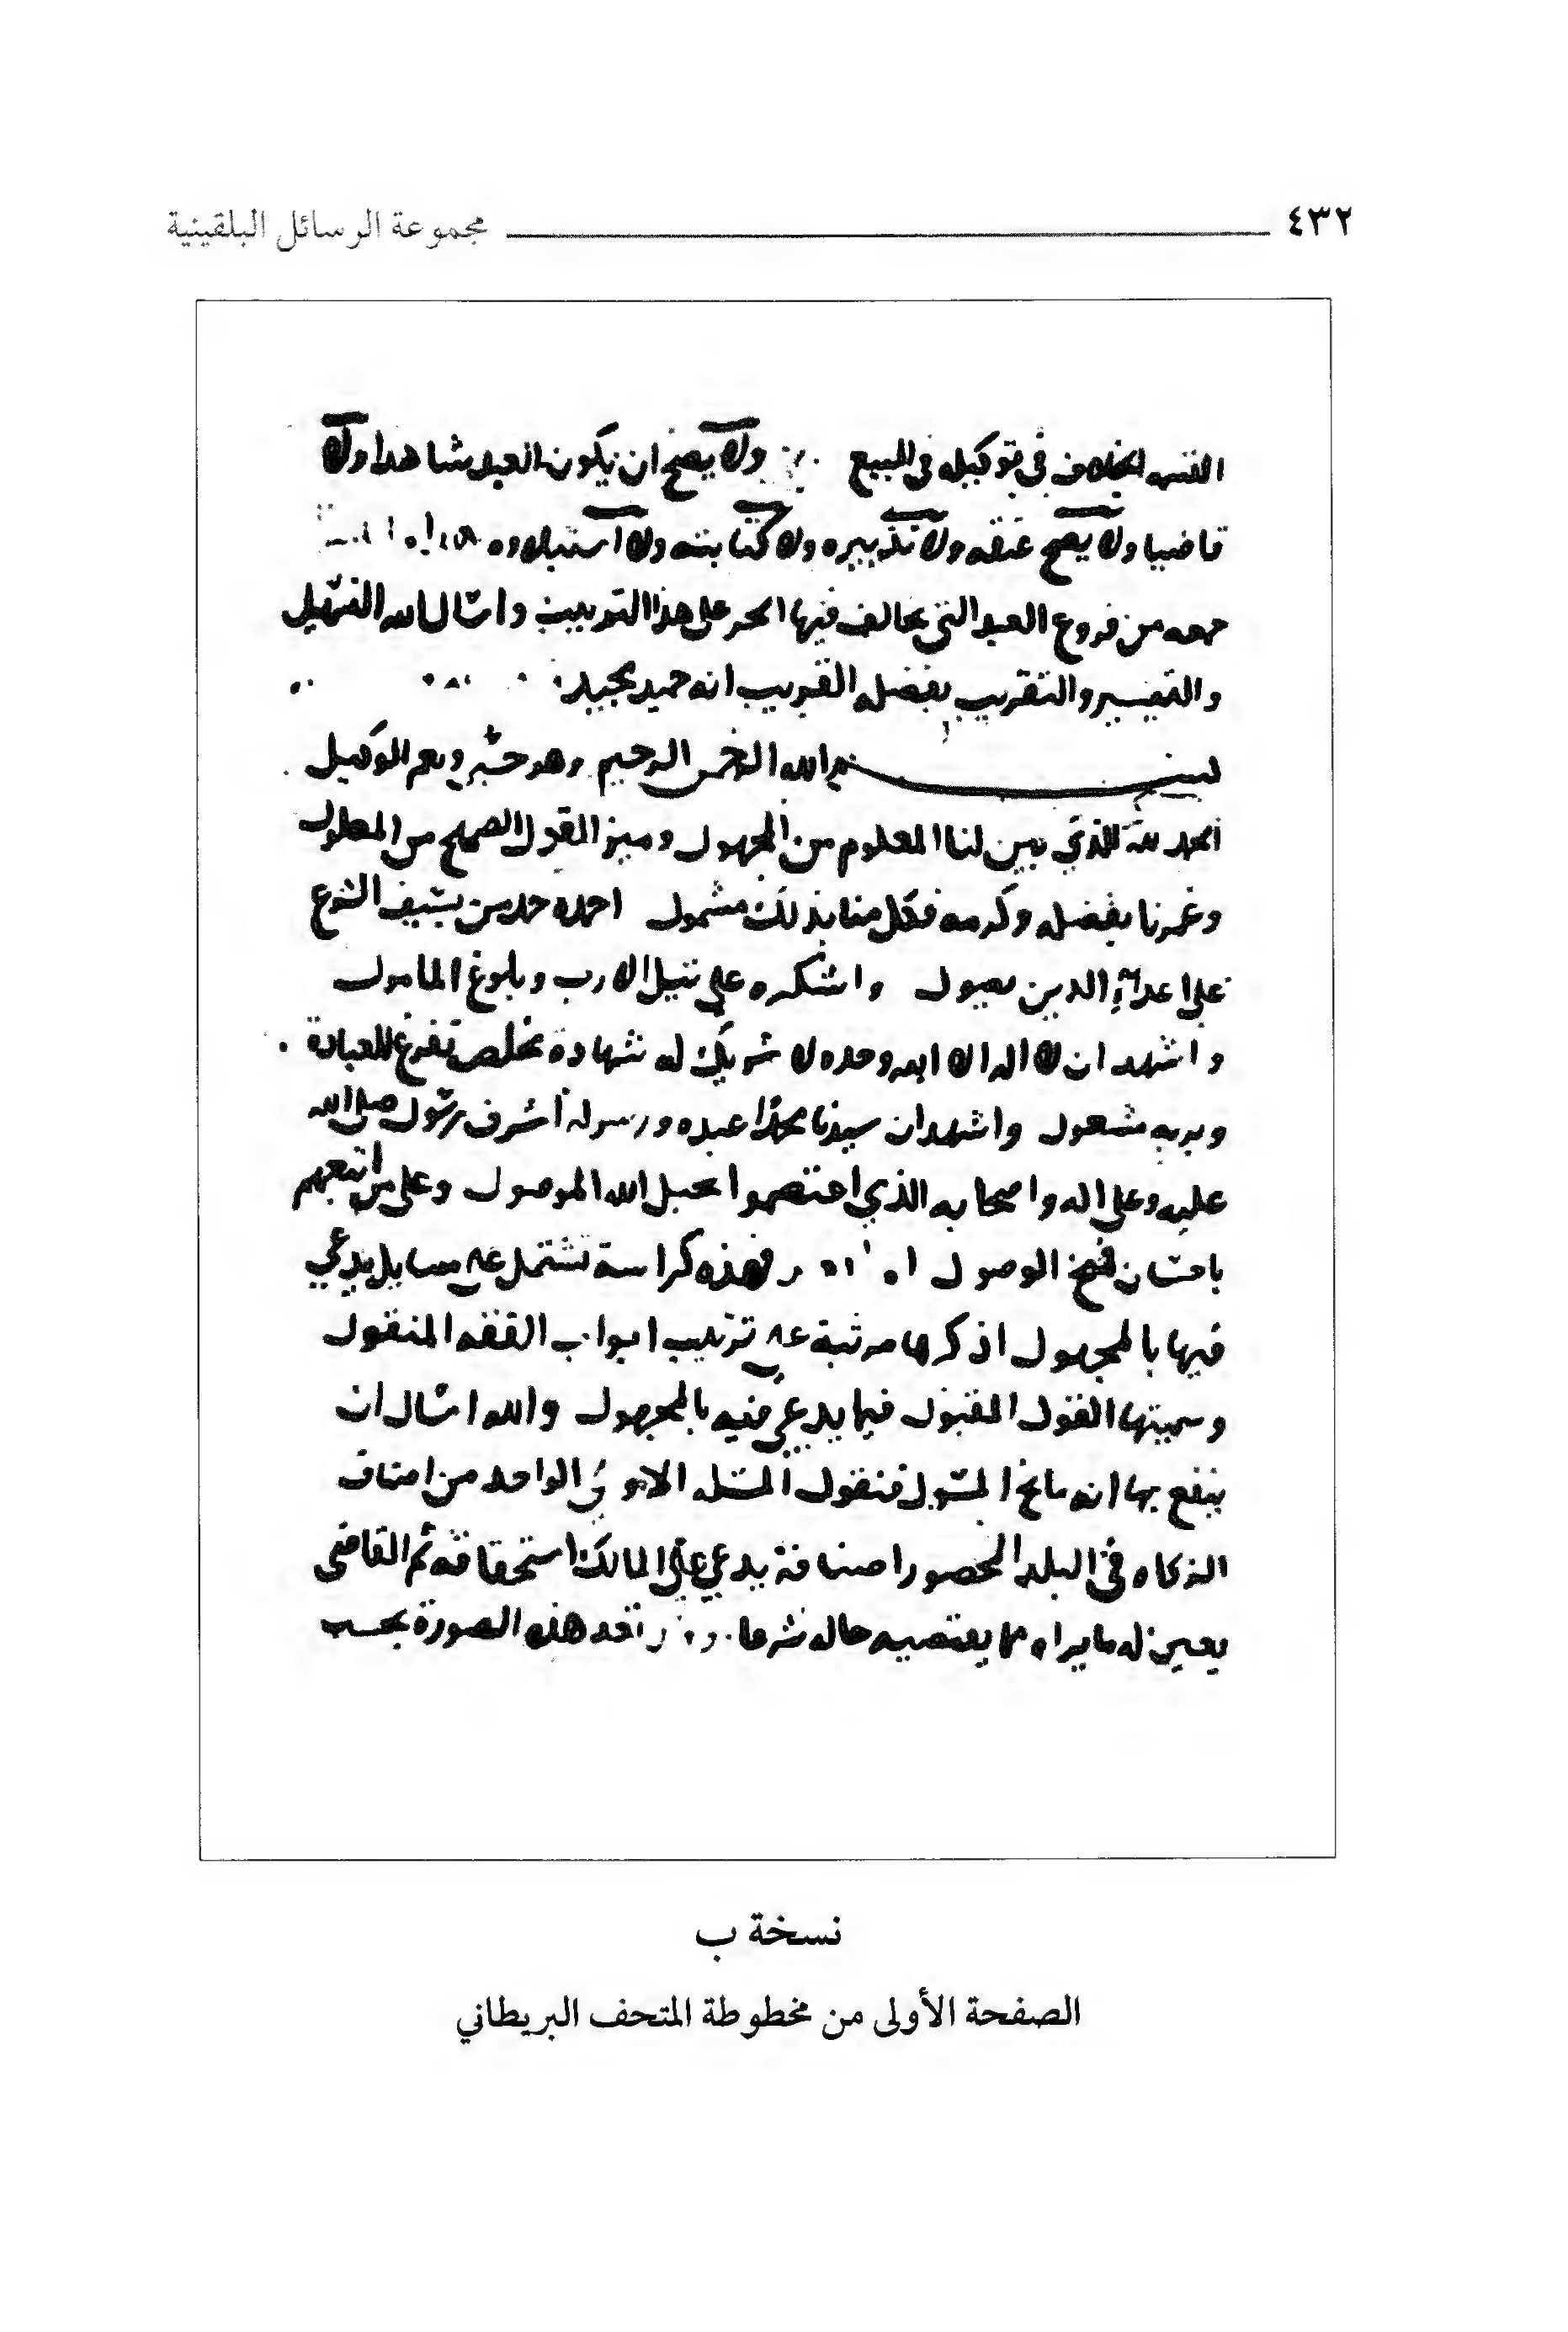 ٤٣٢ مجموعة الرسائل البلقينية
الخلاف في توكيله في البيع ولا يصح ان يكون العبد شاهدا ولا
قاضيا ولا يصح عتقه ولا تدبيره ولا كتابته ولا استيلاده
جمعه من فروع العبد التي يخالف فيها الحر على هذا الترتيب واسال الله التسهيل
والتيسير والتقريب بفضله القريب انه حميد مجيد
بسم الله الرحمن الرحيم وهو حسبي ونعم الوكيل
الحمد لله الذي بين لنا المعلوم من المجهول وميز القول الصحيح من المعلول
وغمرنا بفضله وكرمه فكل منا بذلك مشمول احمده حمد من بسيف الشرع
على اعداء الدين يصول واشكره على نيل الارب وبلوغ المامول
واشهد ان لا اله الا الله وحده لا شريك له شهادة مخلص تفرغ للعبادة
وبربه مشغول واشهد ان سيدنا محمدا عبده ورسوله اشرف رسول صلى الله
عليه وعلى اله واصحابه الذي اعتصموا بحبل الله الموصول وعلى من اتبعهم
باحسان الوصول فهذه كراسة تشتمل على مسايل يدعي
فيها بالمجهول اذكرها مرتبة على ترتيب ابواب الفقه المنقول
وسميتها القول المقبول فيما يدعى فيه بالمجهول والله اسال ان
ينفع بها انه مانح السول فنقول المسله الاولى الواحد من اصناف
الزكاه في البلد المحصور اصنافه يدعي على المالك استحقاقه ثم القاضي
يعين له ما يراه مما يقتضيه حاله شرعا هذه الصورة بحسب
نسخة ب
الصفحة الأولى من مخطوطة المتحف البريطاني